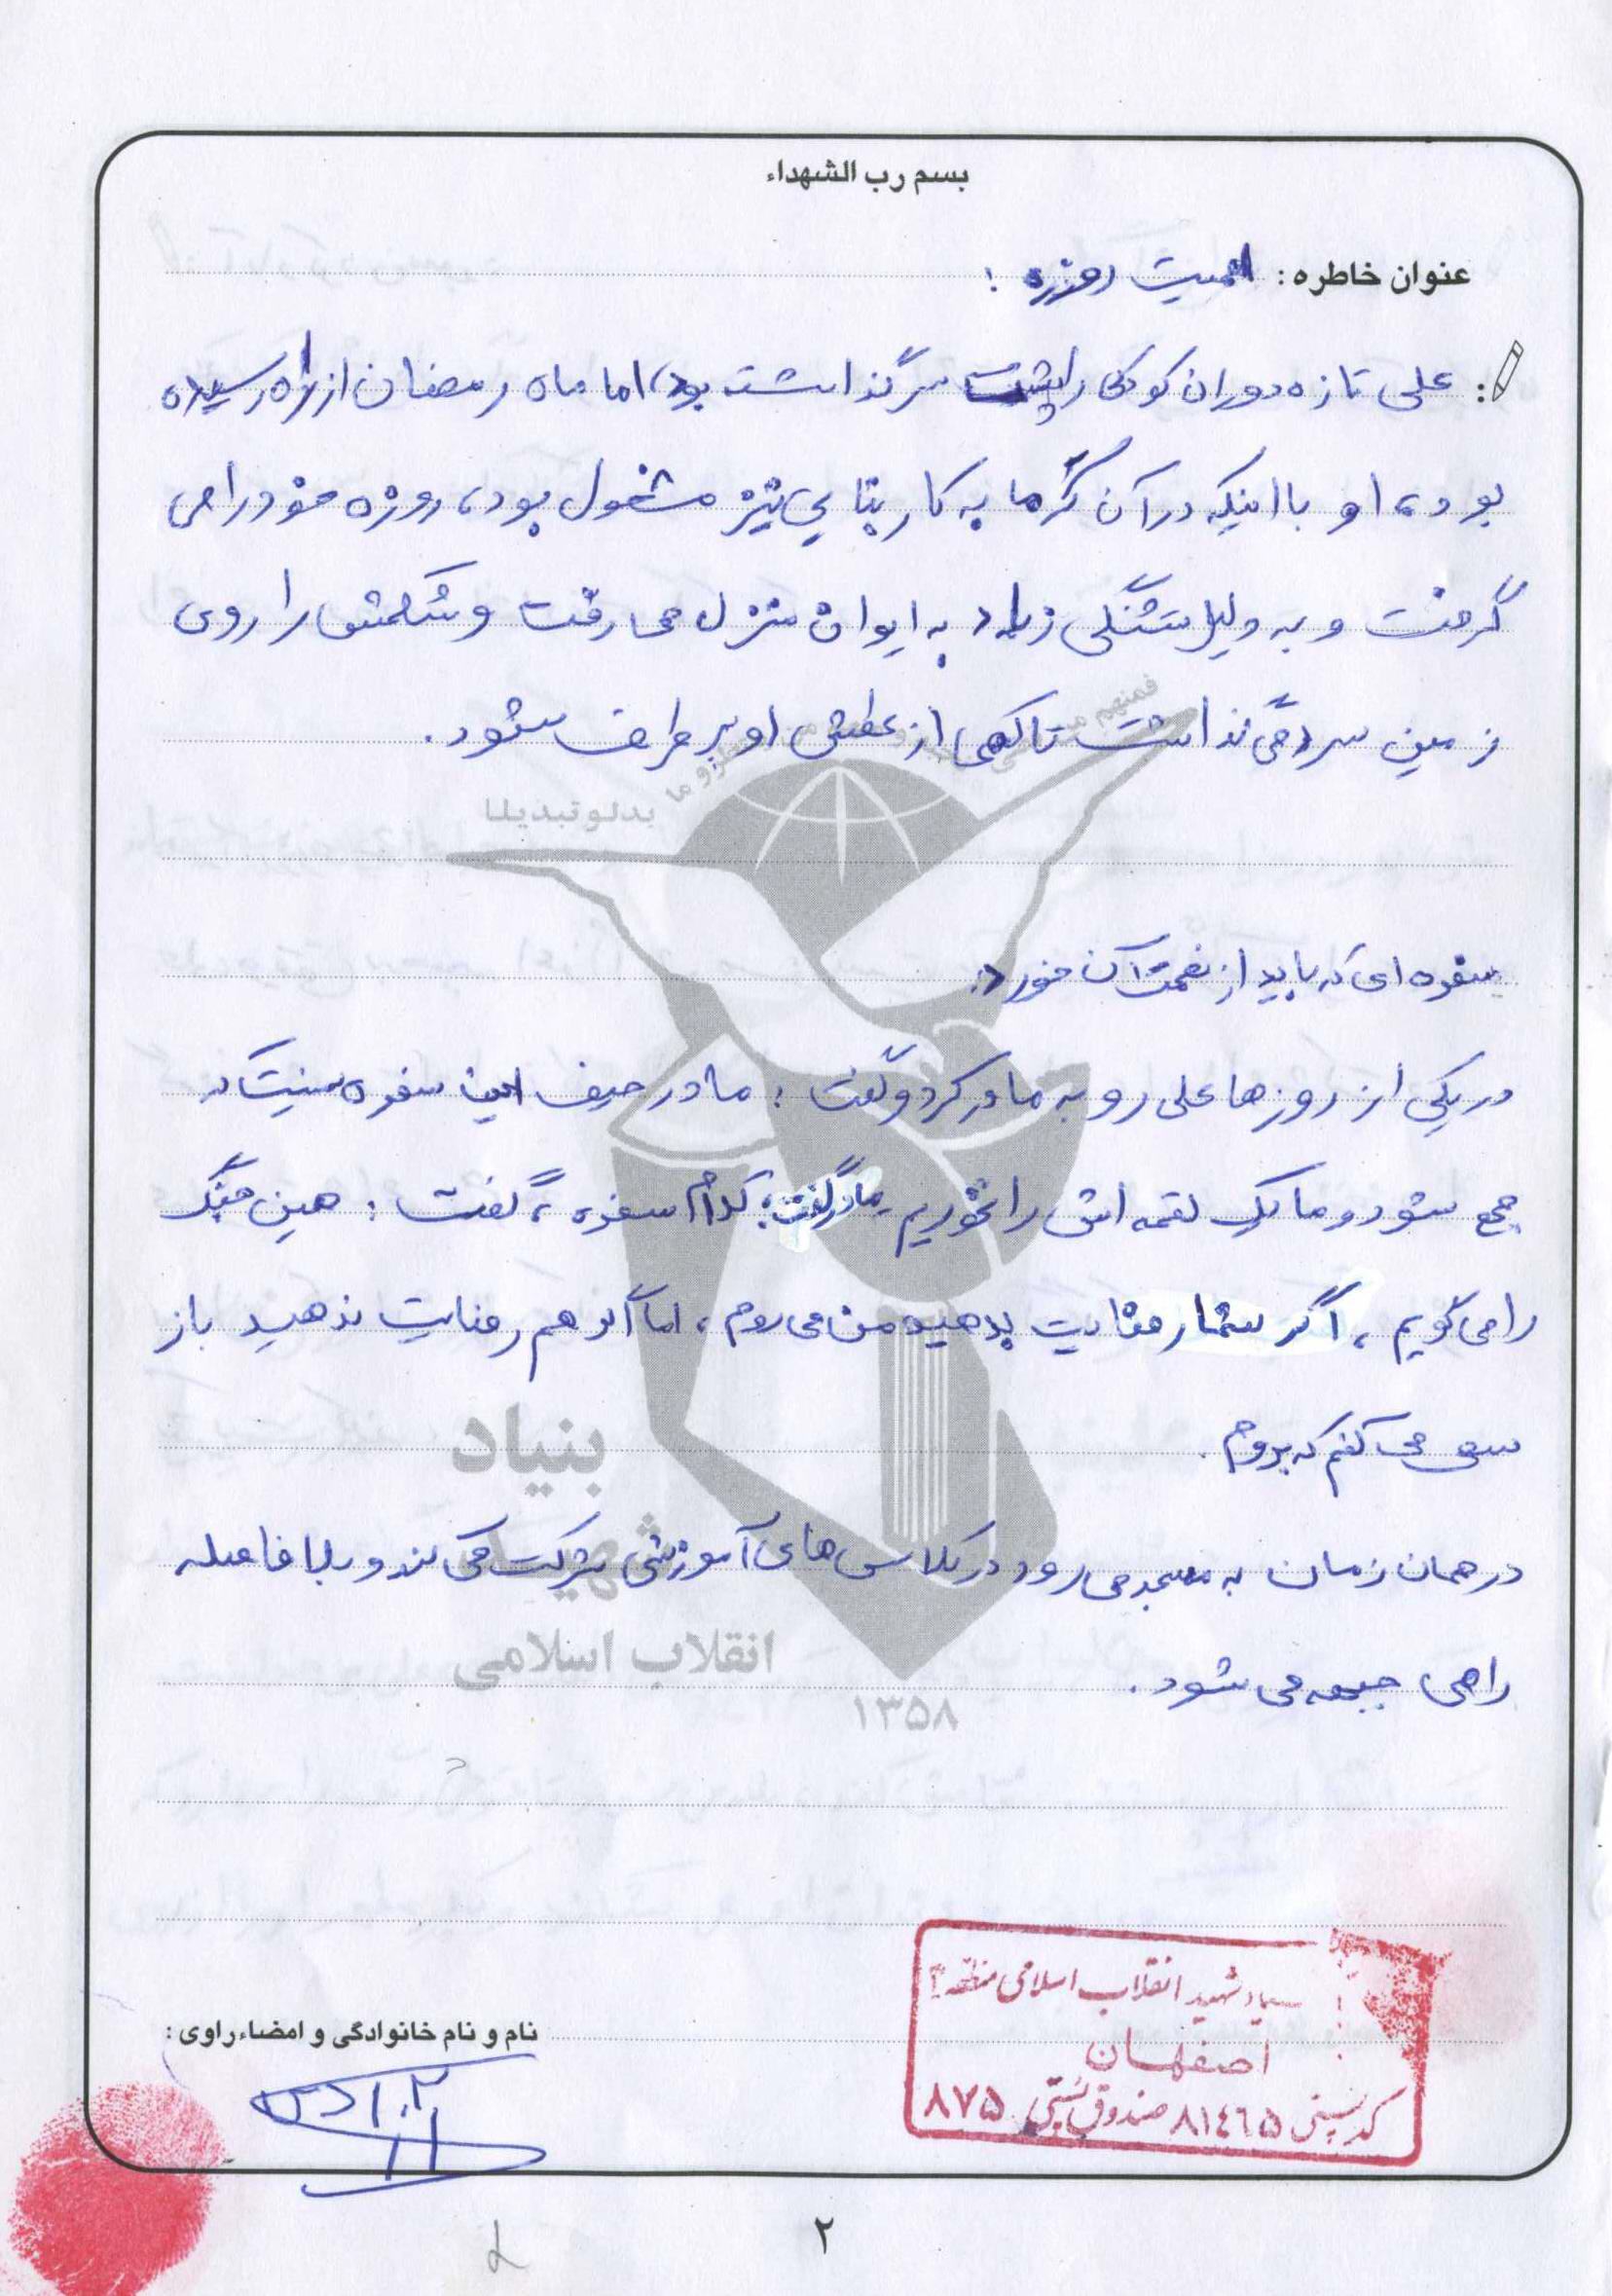 بسم رب الشهداء
عنوان خاطره : اهمیت روزه :
علی تازه دوران کودکی را پشت سر گذاشت بود، اما ماه رمضان از راه رسیده
بود، او با اینکه در آن گرما به کار بنایی نیز مشغول بود، روزه خود را می
گرفت و به دلیل تشنگی زیاد به ایوان منزل می رفت و شکمش را روی
زمین سرد می گذاشت تا کمی از عطش او بر طرف شود.
سفره ای که باید از نعمت آن خورد:
در یکی از روزها علی رو به مادر کرد و گفت : مادر حیف این سفره نیست که
جمع شود و ما یک لقمه اش را نخوریم مادر گفت: کدام سفره، گفت : همین جنگ
را می گویم ، اگر شما رضایت بدهید من می روم ، اما اگر هم رضایت ندهید باز
سعی می کنم که بروم .
در همان زمان به مسجد می رود در کلاس های آموزشی شرکت می کند و بلا فاصله
راهی جبهه می شود .
فمنهم من
وما بدلو تبدیلا
بنیاد
شهید
انقلاب اسلامی
۱۳۵۸
بنیاد شهید انقلاب اسلامی منطقه ۲
اصفهان
کد پستی ۸۱٤٦۵ صندوق پستی ۸۷۵
نام و نام خانوادگی و امضاء راوی :
۲